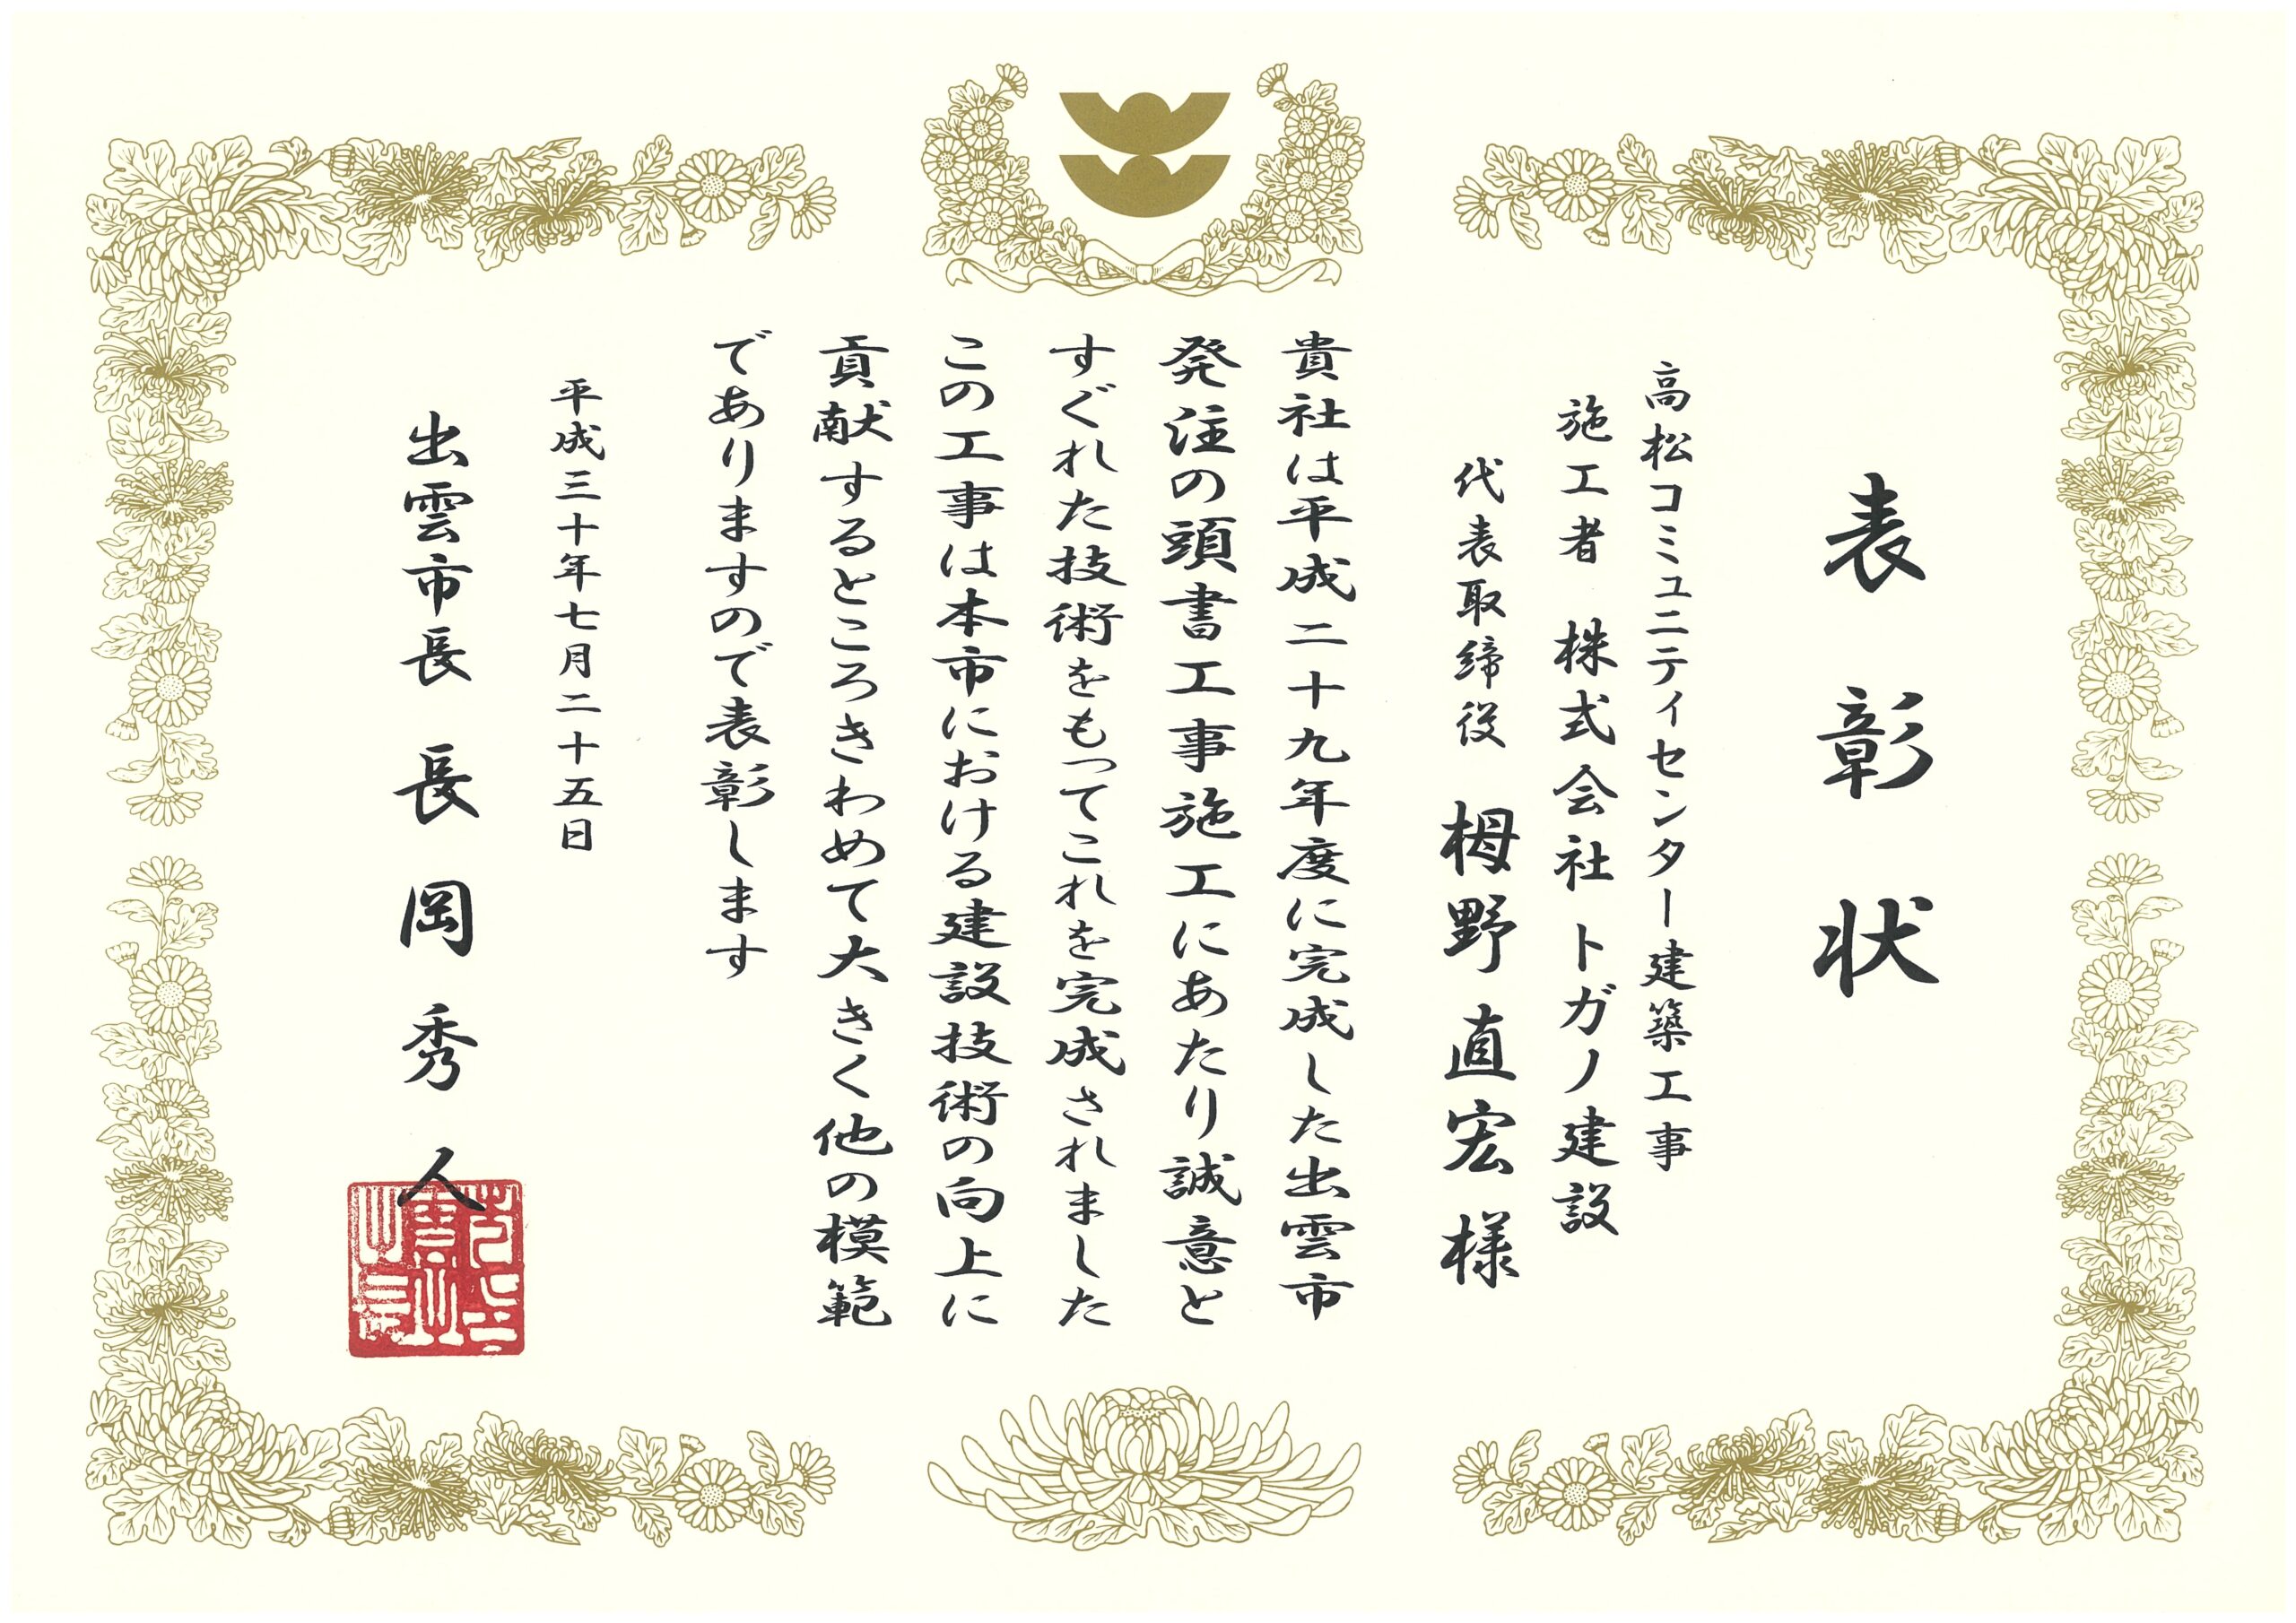 表彰状
高松コミュニティセンター建築工事
施工者 株式会社トガノ建設
代表取締役 栂野直宏様
貴社は平成二十九年度に完成した出雲市
発注の頭書工事施工にあたり誠意と
すぐれた技術をもってこれを完成されました
この工事は本市における建設技術の向上に
貢献するところきわめて大きく他の模範
でありますので表彰します
平成三十年七月二十五日
出雲市長 長岡秀人